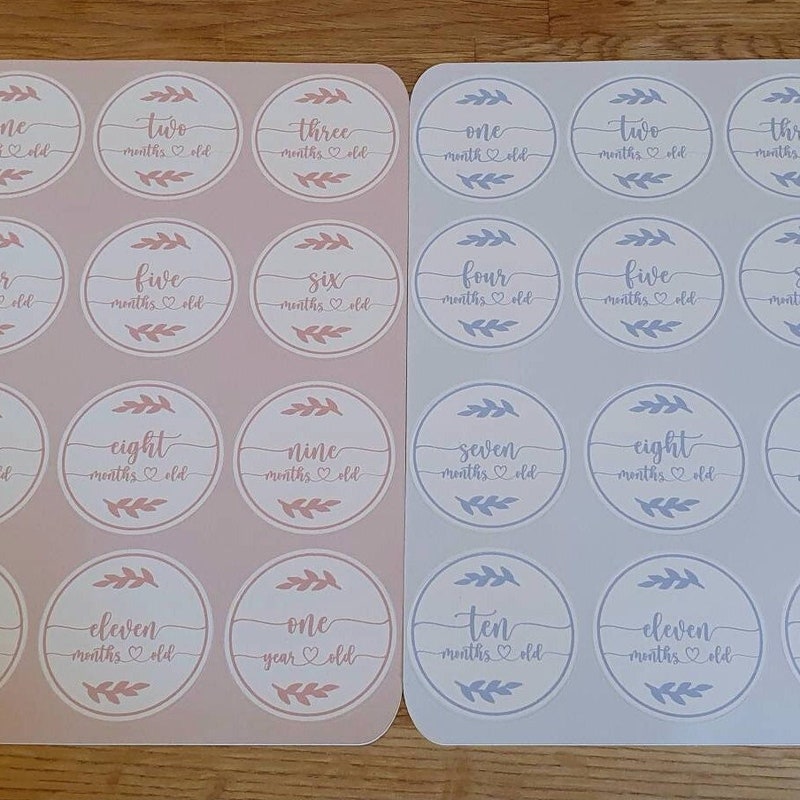 old
two
months old
three
months old
old
five
months old
six
months old
eight
months old
nine
months old
eleven
months old
one
year old
one
month old
two
months old
four
months old
five
months old
seven
months old
eight
months old
ten
months old
eleven
months old